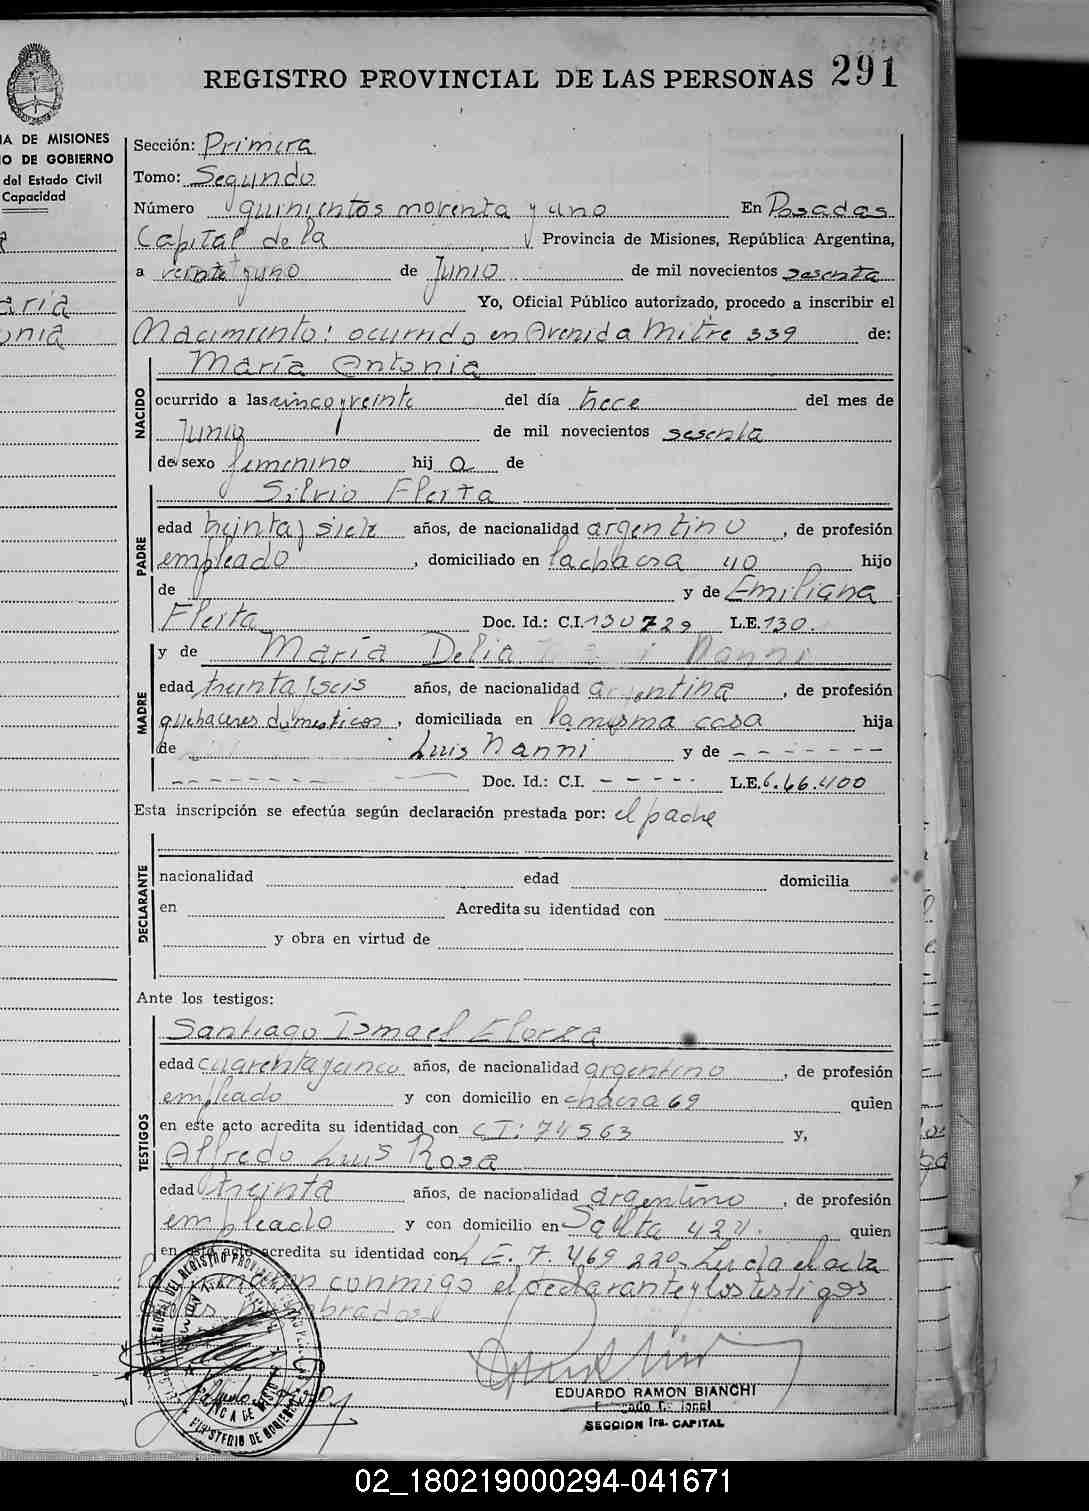 REGISTRO PROVINCIAL DE LAS PERSONAS 291
IA DE MISIONES
IO DE GOBIERNO
del Estado Civil
Capacidad
aría
onia
Sección: Primera
Tomo: Segundo
Número quinientos noventa y uno En Posadas
Capital de la Provincia de Misiones, República Argentina,
a veinte y uno de Junio de mil novecientos sesenta
Yo, Oficial Público autorizado, procedo a inscribir el
Nacimiento: ocurrido en Avenida Mitre 339 de:
NACIDO
María Antonia
ocurrido a las cinco y veinte del día trece del mes de
Junio de mil novecientos sesenta
de sexo femenino hij a de
PADRE
Silvio Fleita
edad treinta y siete años, de nacionalidad argentino, de profesión
empleado, domiciliado en la chacra 40 hijo
de y de Emiliana
Fleita Doc. Id.: C.I. 130729 L.E. 130.
MADRE
y de María Delia Nanni
edad treinta y seis años, de nacionalidad argentina, de profesión
quehaceres domesticos, domiciliada en la misma casa hija
de Luis Nanni y de - - - - - -
- - - - - - Doc. Id.: C.I. - - - - - L.E. 6.66.400
Esta inscripción se efectúa según declaración prestada por: el padre
DECLARANTE
nacionalidad edad domicilia
en Acredita su identidad con
y obra en virtud de
Ante los testigos:
TESTIGOS
Santiago Ismael
edad cuarenta y cinco años, de nacionalidad argentino, de profesión
empleado y con domicilio en chacra 69 quien
en este acto acredita su identidad con CI: 74563 y,
Alfredo Luis Rosa
edad treinta años, de nacionalidad argentino, de profesión
empleado y con domicilio en Salta 424. quien
en este acto acredita su identidad con L.E. 7.469.220. Leida el acta
la conmigo el declarante y los testigos
EDUARDO RAMON BIANCHI
SECCION 1ra. CAPITAL
MINISTERIO DE GOBIERNO
02_180219000294-041671